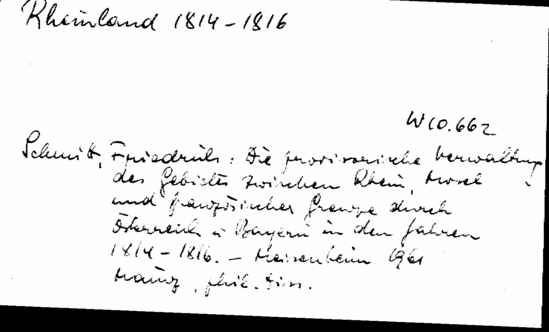 Rheinland 1814-1816
W 10.662
Schmitt, Friedrich: Die provisorische Verwaltung
des Gebietes zwischen Rhein, Mosel
und französischer Grenze durch
Österreich u Bayern in den Jahren
1814-1816. - Meisenheim 1961
Mainz, phil. Diss.